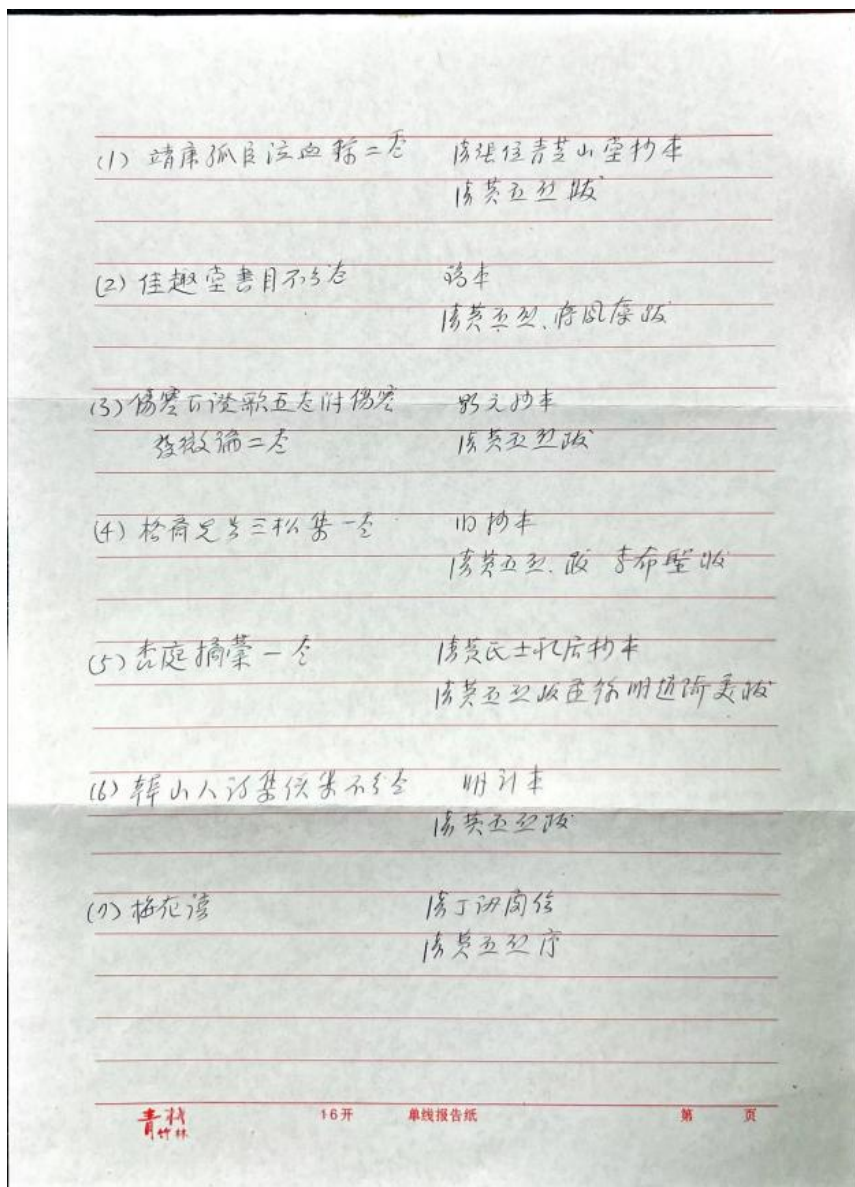 (1) 靖康孤臣泣血录二卷 清张位青芝山堂抄本
清黄丕烈跋
(2) 佳趣堂書目不分卷 稿本
清黄丕烈、蒋凤藻跋
(3) 傷寒百證歌五卷附傷寒 影元抄本
發微論二卷 清黄丕烈跋
(4) 格斋先生三松集一卷 旧抄本
清黄丕烈、跋 李希聖跋
(5) 杏庭摘藁一卷 清黄氏士礼居抄本
清黄丕烈跋 明趙琦美跋
(6) 韩山人诗集续集不分卷 明刊本
清黄丕烈跋
(7) 梅花 清丁
清黄丕烈序
青 竹林 16开 单线报告纸 第 页